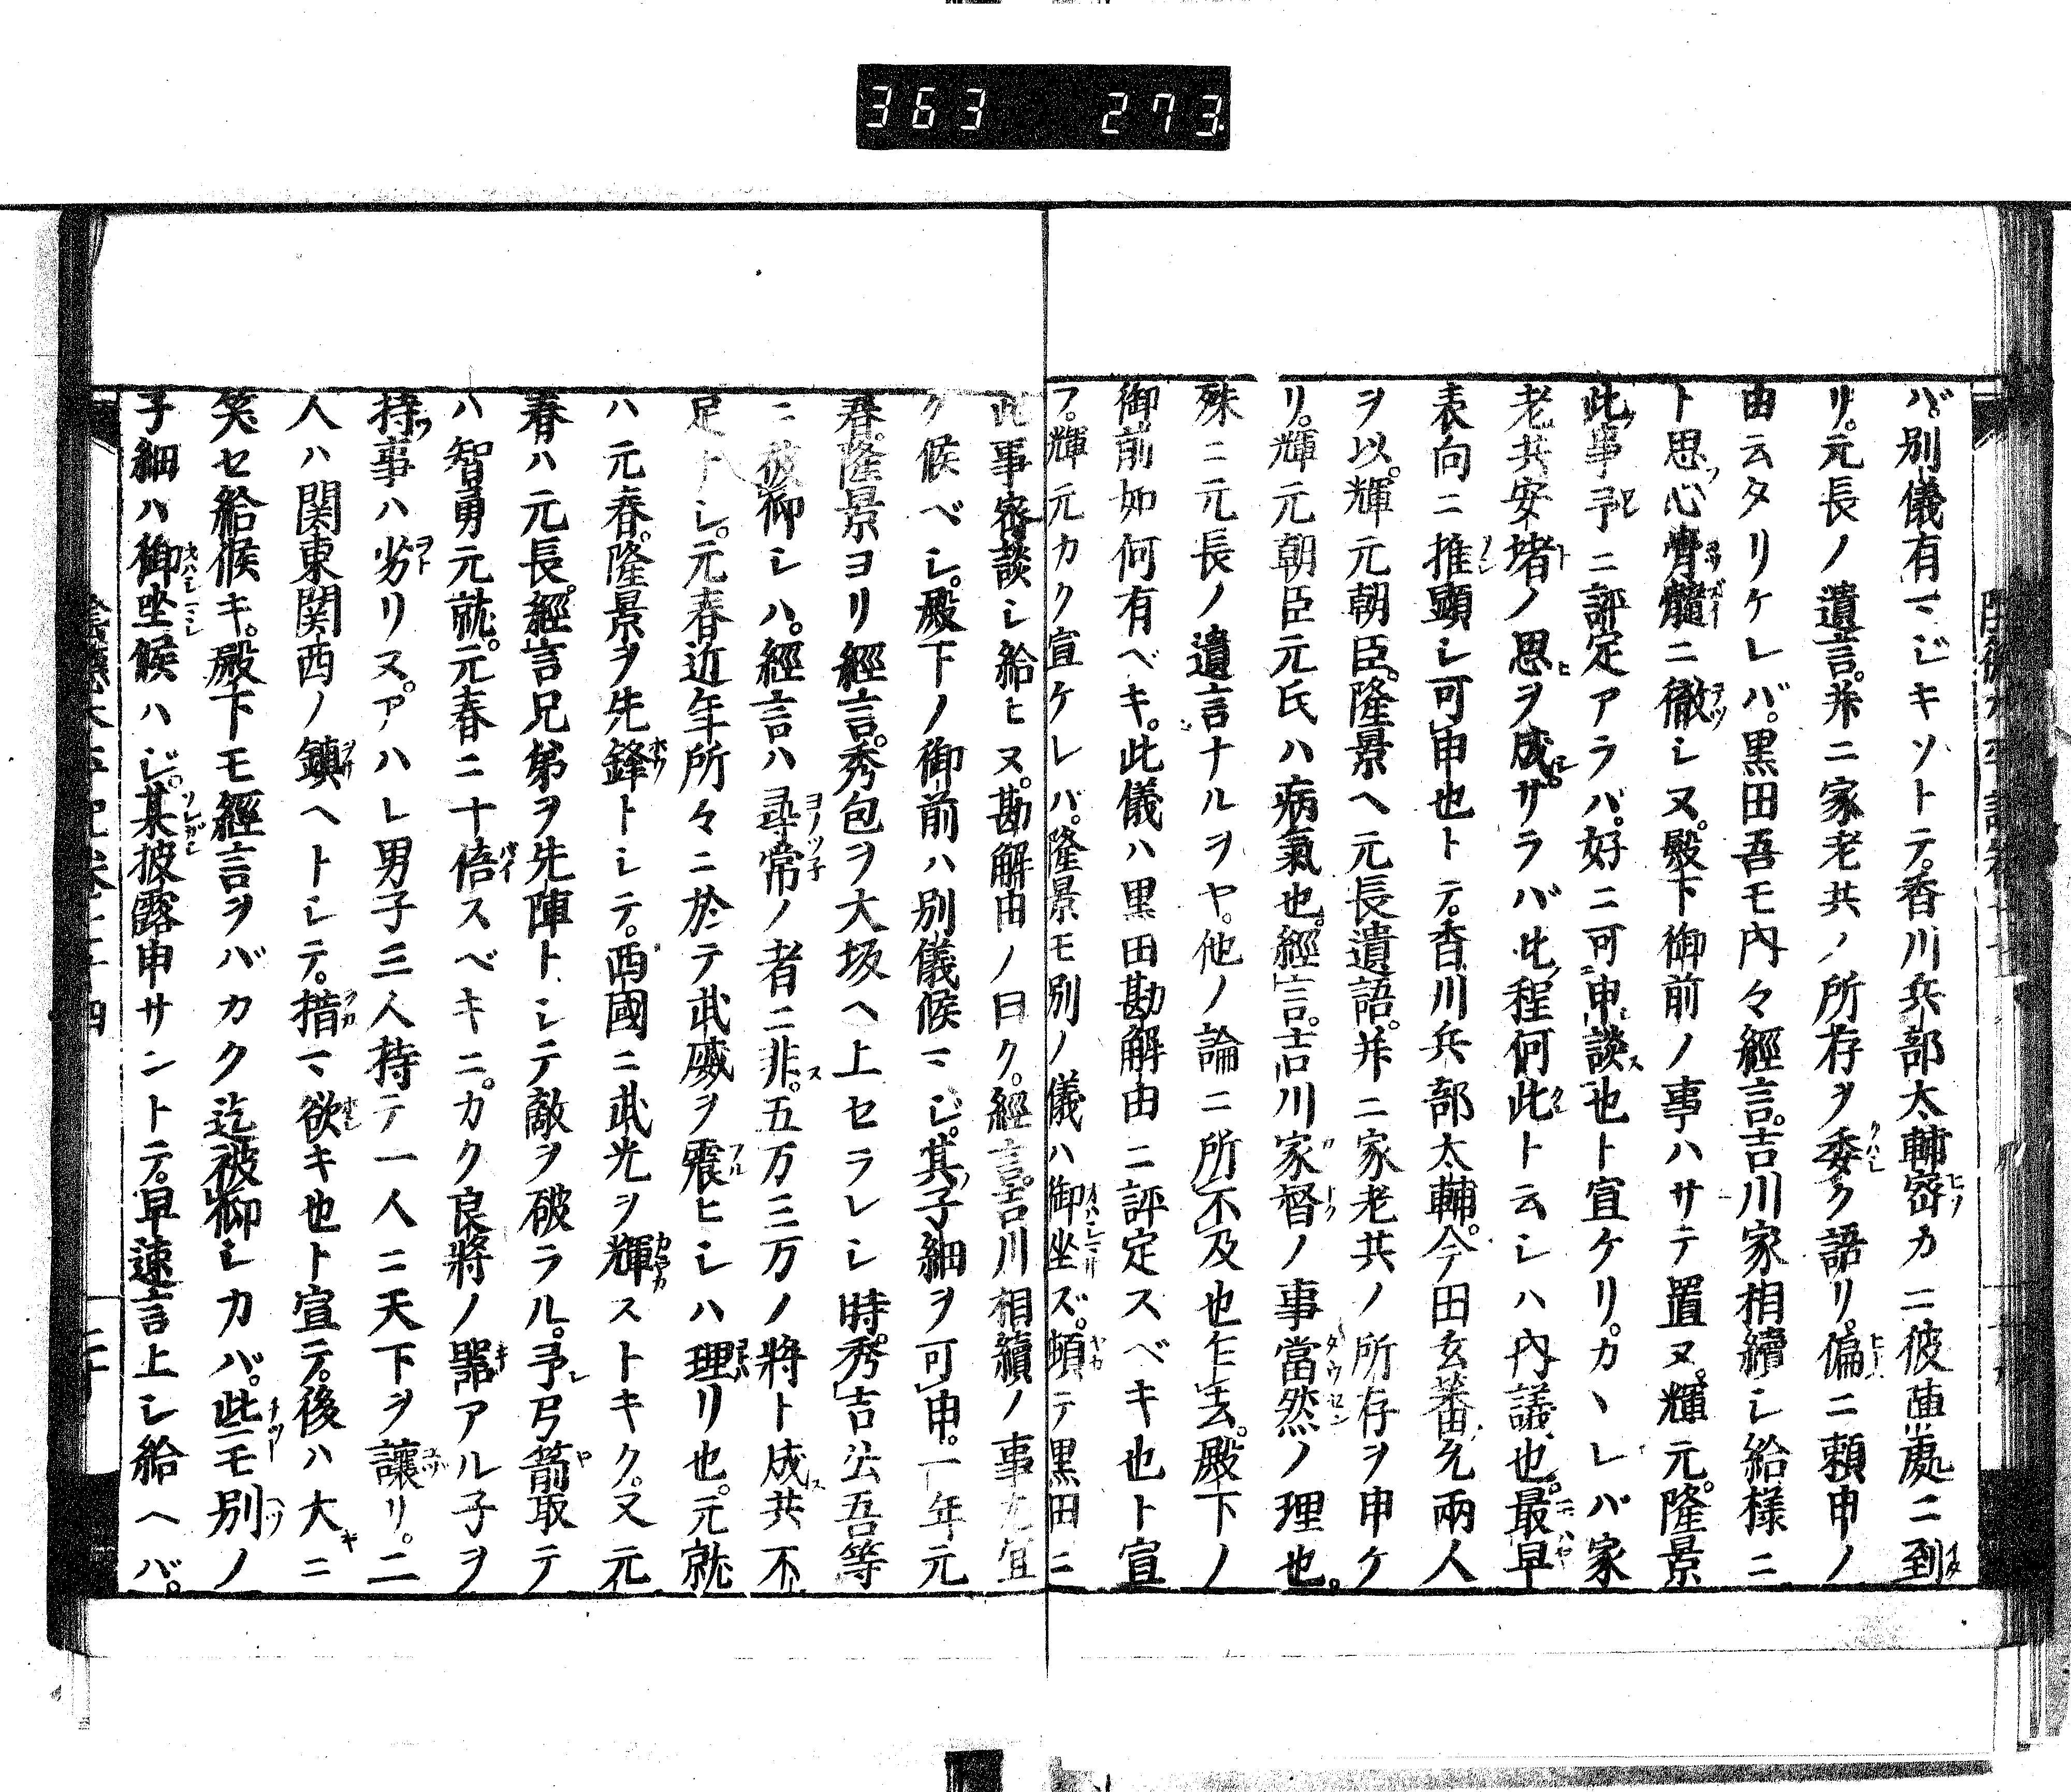 363 273
バ。別儀有マジキソトテ。香川兵部太輔密カニ彼連處ニ到
リ。元長ノ遺言。并ニ家老共ノ所存ヲ委ク語リ。偏ニ頼申ノ
由云タリケレバ。黒田吾モ內々經言。吉川家相續シ給様ニ
ト思心骨髓ニ徹シヌ。殿下御前ノ事ハサテ置ヌ。輝元。隆景
此事予ニ評定アラバ。好ニ可申談也ト宣ケリ。カヽレバ家
老共安堵ノ思ヲ成サラバ此程何此ト云シハ內議也。最早
表向ニ推顕シ可申也トテ。香川兵部太輔。今田玄蕃允兩人
ヲ以。輝元朝臣。隆景ヘ元長遺語。并ニ家老共ノ所存ヲ申ケ
リ。輝元朝臣元氏ハ病氣也。經言。吉川家督ノ事當然ノ理也。
殊ニ元長ノ遺言ナルヲヤ。他ノ論ニ所不及也乍去。殿下ノ
御前如何有ベキ。此儀ハ黒田勘解由ニ評定スベキ也ト宣
フ。輝元カク宣ケレバ。隆景モ別ノ儀ハ御坐ズ。頓テ黒田ニ
此事密談シ給ヒヌ。勘解由ノ曰ク。經言。吉川相續ノ事尤宜
ク候ベシ。殿下ノ御前ハ別儀候マジ。其子細ヲ可申。一年元
春。隆景ヨリ經言。秀包ヲ大坂ヘ上セラレシ時。秀吉公吾等
ニ被仰シハ。經言ハ尋常ノ者ニ非。五万三万ノ將ト成共不
足トシ。元春近年所々ニ於テ武威ヲ震ヒシハ理リ也。元就
ハ元春。隆景ヲ先鋒トシテ。西國ニ武光ヲ輝ストキク。又元
春ハ元長。經言兄弟ヲ先陣トシテ敵ヲ破ラル。予弓箭取テ
ハ智勇元就。元春ニ十倍スベキニ。カク良將ノ器アル子ヲ
持事ハ劣リヌ。アハレ男子三人持テ一人ニ天下ヲ讓リ。二
人ハ関東関西ノ鎮ヘトシテ。措マ欲キ也ト宣テ。後ハ大ニ
笑セ給候キ。殿下モ經言ヲバカク迄被仰シカバ。些モ別ノ
子細ハ御坐候ハジ。某披露申サントテ。早速言上シ給ヘバ。